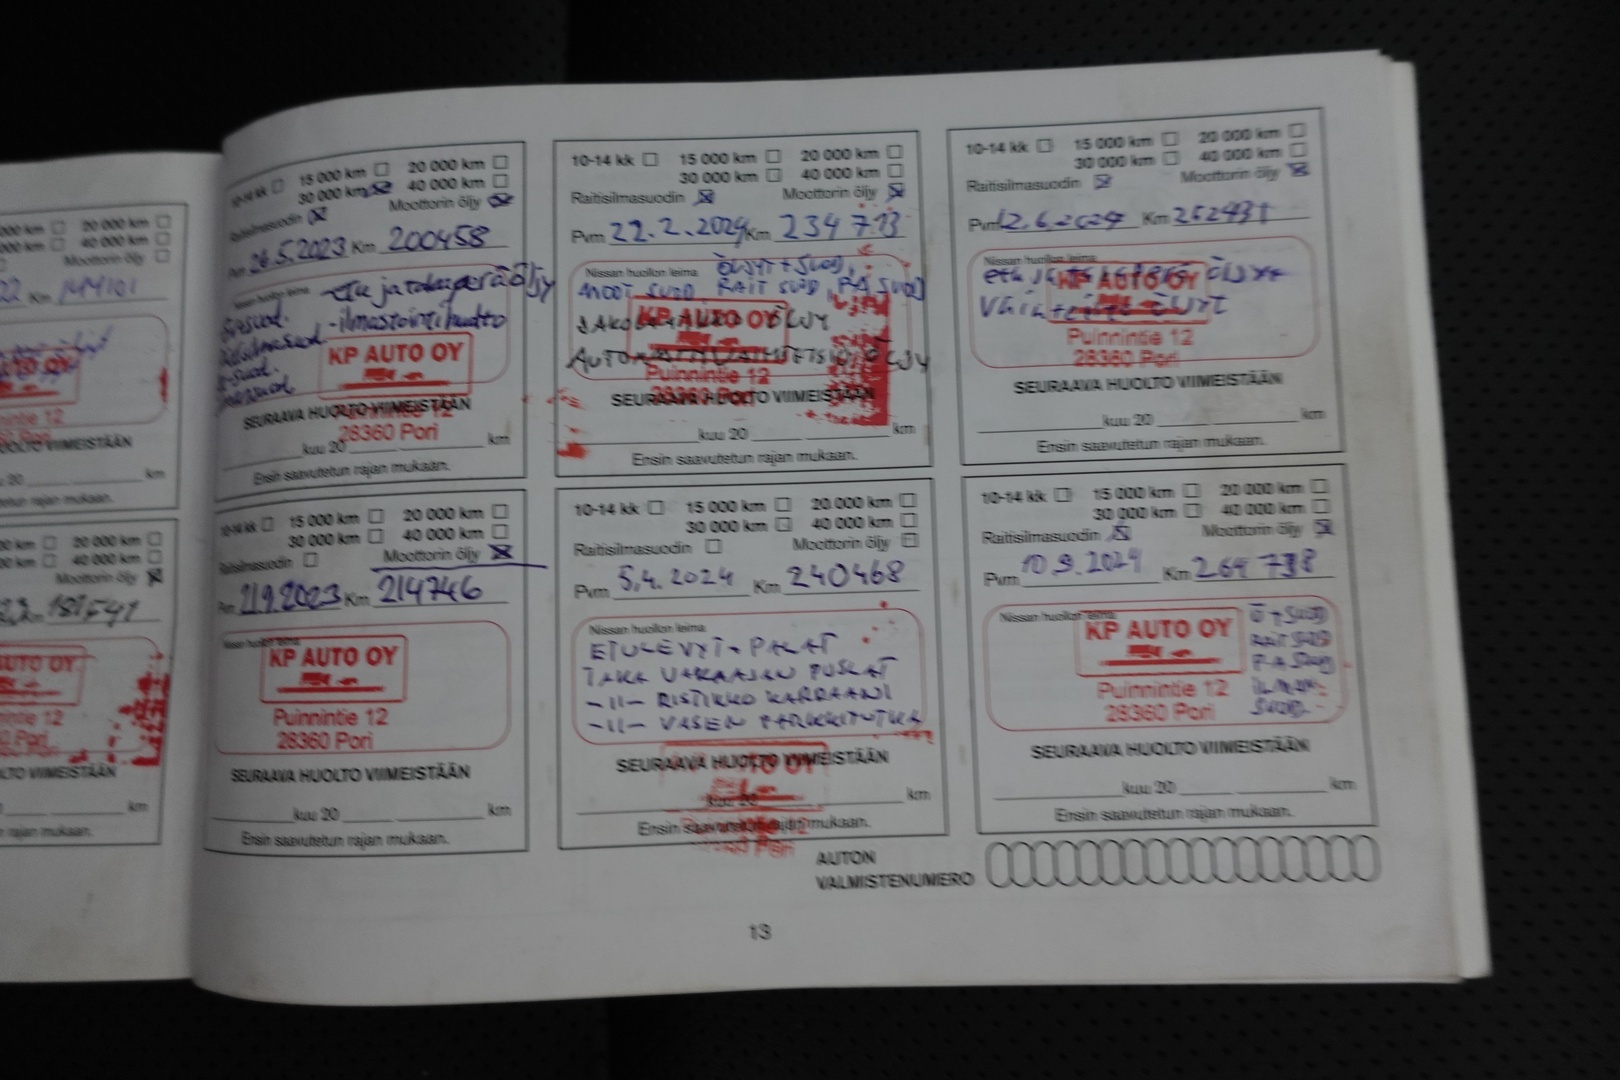 000 km 20 000 km
000 km 40 000 km
Moottorin öljy
22 Km 144101
Puinnintie 12
28360 Pori
SEURAAVA HUOLTO VIIMEISTÄÄN
20 km
rajan mukaan.
000 km 20 000 km
000 km 40 000 km
Moottorin öljy
Km 181541
KP AUTO OY
Puinnintie 12
28360 Pori
VIIMEISTÄÄN
km
rajan mukaan.
10-14 kk 15 000 km 20 000 km
30 000 km 40 000 km
Raitisilmasuodin Moottorin öljy
Pvm 26.5.2023 Km 200458
Nissan huollon leima
etu ja takaperäöljy
-ilmastointihuolto
KP AUTO OY
SEURAAVA HUOLTO VIIMEISTÄÄN
28360 Pori
kuu 20 km
Ensin saavutetun rajan mukaan.
10-14 kk 15 000 km 20 000 km
30 000 km 40 000 km
Raitisilmasuodin Moottorin öljy
Pvm 21.9.2023 Km 214746
Nissan huollon leima
KP AUTO OY
Puinnintie 12
28360 Pori
SEURAAVA HUOLTO VIIMEISTÄÄN
kuu 20 km
Ensin saavutetun rajan mukaan.
10-14 kk 15 000 km 20 000 km
30 000 km 40 000 km
Raitisilmasuodin Moottorin öljy
Pvm 22.2.2024 Km 234 713
Nissan huollon leima ÖLJYT + SUOD,
MOOT SUOD, RAIT SUOD, PA SUOD
KP AUTO OY
JAKO ÖLJY
ÖLJY
Puinnintie 12
28360 Pori
SEURAAVA HUOLTO VIIMEISTÄÄN
kuu 20 km
Ensin saavutetun rajan mukaan.
10-14 kk 15 000 km 20 000 km
30 000 km 40 000 km
Raitisilmasuodin Moottorin öljy
Pvm 5.4.2024 Km 240468
Nissan huollon leima
ETULEVYT + PALAT
TAKA VAKAAJAN PUSLAT
-11- RISTIKKO KARDAANI
-11- VASEN PARKKITUTKA
SEURAAVA HUOLTO VIIMEISTÄÄN
kuu 20 km
Ensin saavutetun rajan mukaan.
10-14 kk 15 000 km 20 000 km
30 000 km 40 000 km
Raitisilmasuodin Moottorin öljy
Pvm 12.6.2024 Km
Nissan huollon leima
KP AUTO OY
Puinnintie 12
28360 Pori
SEURAAVA HUOLTO VIIMEISTÄÄN
kuu 20 km
Ensin saavutetun rajan mukaan.
10-14 kk 15 000 km 20 000 km
30 000 km 40 000 km
Raitisilmasuodin Moottorin öljy
Pvm 10.9.2024 Km
Nissan huollon leima
KP AUTO OY
Puinnintie 12
28360 Pori
Ö + SUOD
RAIT SUOD
PA SUOD
ILMAN-
SUOD.
SEURAAVA HUOLTO VIIMEISTÄÄN
kuu 20 km
Ensin saavutetun rajan mukaan.
AUTON
VALMISTENUMERO
13